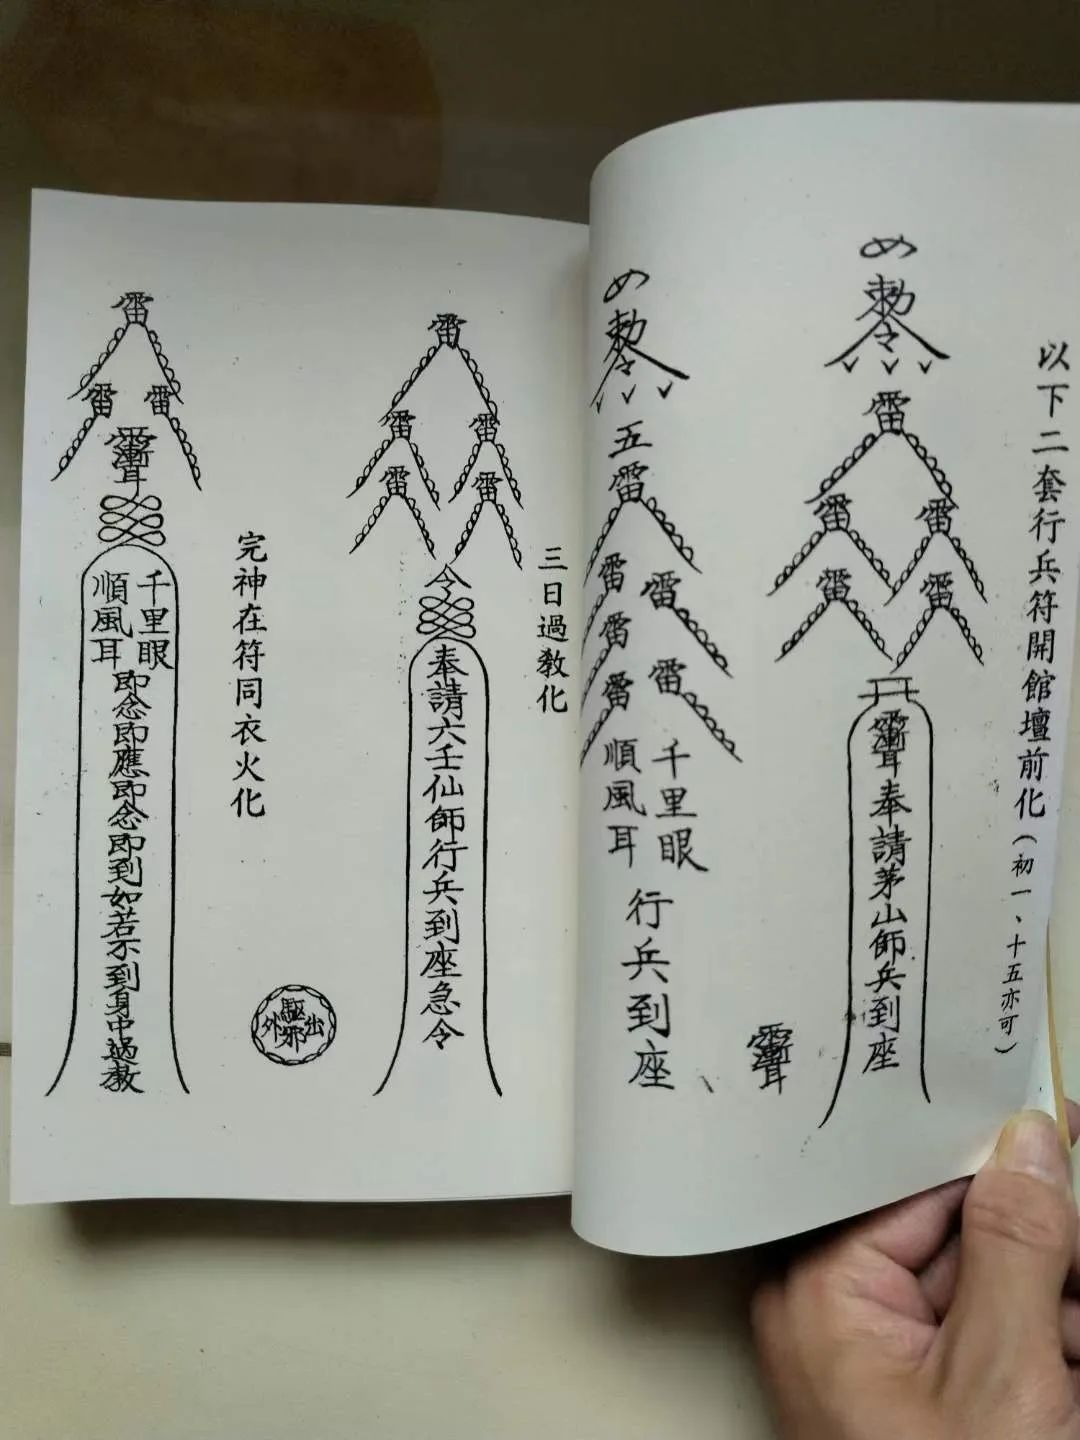 以下二套行兵符開館壇前化（初一、十五亦可）
敕令
雷
雷 雷
雷 雷
奉請茅山師兵到座
敕令
五
雷
雷 雷
雷 雷
雷
千里眼
順風耳
行兵到座
三日過教化
雷
雷 雷
雷 雷
令
奉請六壬仙師行兵到座急令
完神在符同衣火化
驅邪出外
雷
雷 雷
千里眼
順風耳
即念即應即念即到如若不到身中過教